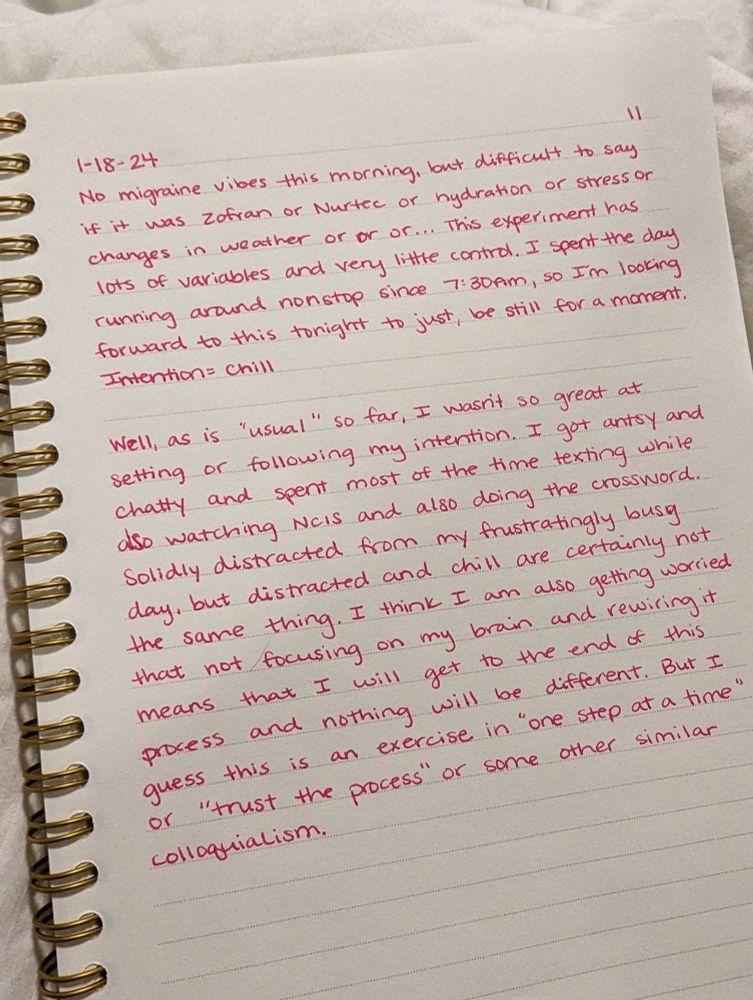 11
1-18-24
No migraine vibes this morning, but difficult to say
if it was Zofran or Nurtec or hydration or stress or
changes in weather or or or... This experiment has
lots of variables and very little control. I spent the day
running around nonstop since 7:30am, so I'm looking
forward to this tonight to just, be still for a moment.
Intention= chill
Well, as is "usual" so far, I wasn't so great at
setting or following my intention. I got antsy and
chatty and spent most of the time texting while
also watching NCIS and also doing the crossword.
Solidly distracted from my frustratingly busy
day, but distracted and chill are certainly not
the same thing. I think I am also getting worried
that not focusing on my brain and rewiring it
means that I will get to the end of this
process and nothing will be different. But I
guess this is an exercise in "one step at a time"
or "trust the process" or some other similar
colloquialism.